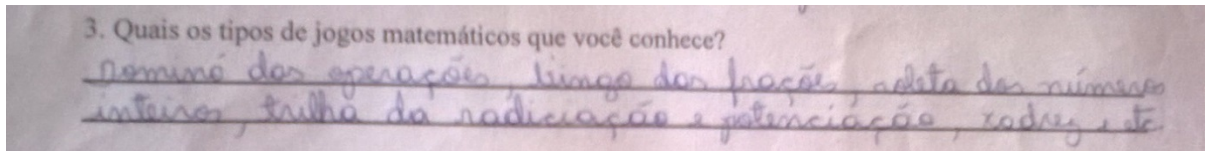 3. Quais os tipos de jogos matemáticos que você conhece?
Dominó das operações, bingo das frações, roleta dos números
inteiros, trilha da radiciação e potenciação, xadrez, etc